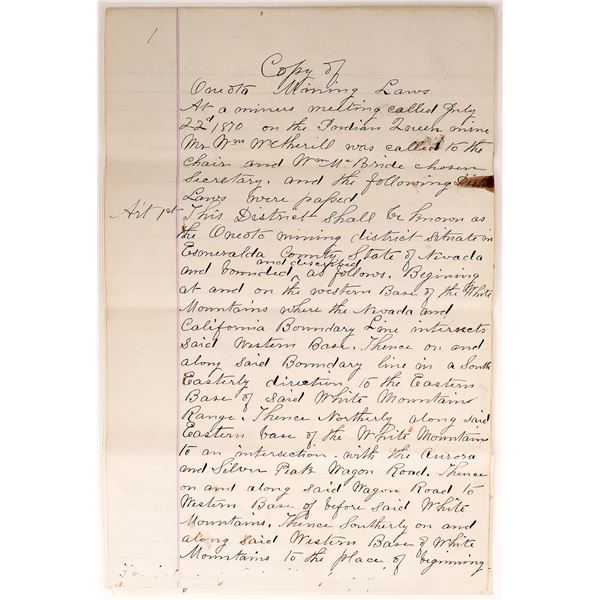 1
Copy of
Oneota Mining Laws
At a miners meeting called July
22d 1870 on the Indian Queen mine
Mr Wm Wetherill was called to the
chair and Wm McBride chosen
Secretary. and the following
Laws were passed
Art 1st This District shall be known as
the Oneota mining district situate in
Esmeralda County State of Nevada
and bounded and described as follows. Begining
at and on the western Base of the White
Mountains where the Nevada and
California Boundary Line intersects
said Western Base. Thence on and
along said Boundary line in a South
Easterly direction to the Eastern
Base of said White Mountains
Range. Thence Northerly along said
Eastern base of the White Mountain
to an intersection with the Aurora
and Silver Peak Wagon Road. Thence
on and along said Wagon Road to
Western Base of before said White
Mountains. Thence Southerly on and
along said Western Base of White
Mountains to the place of beginning.